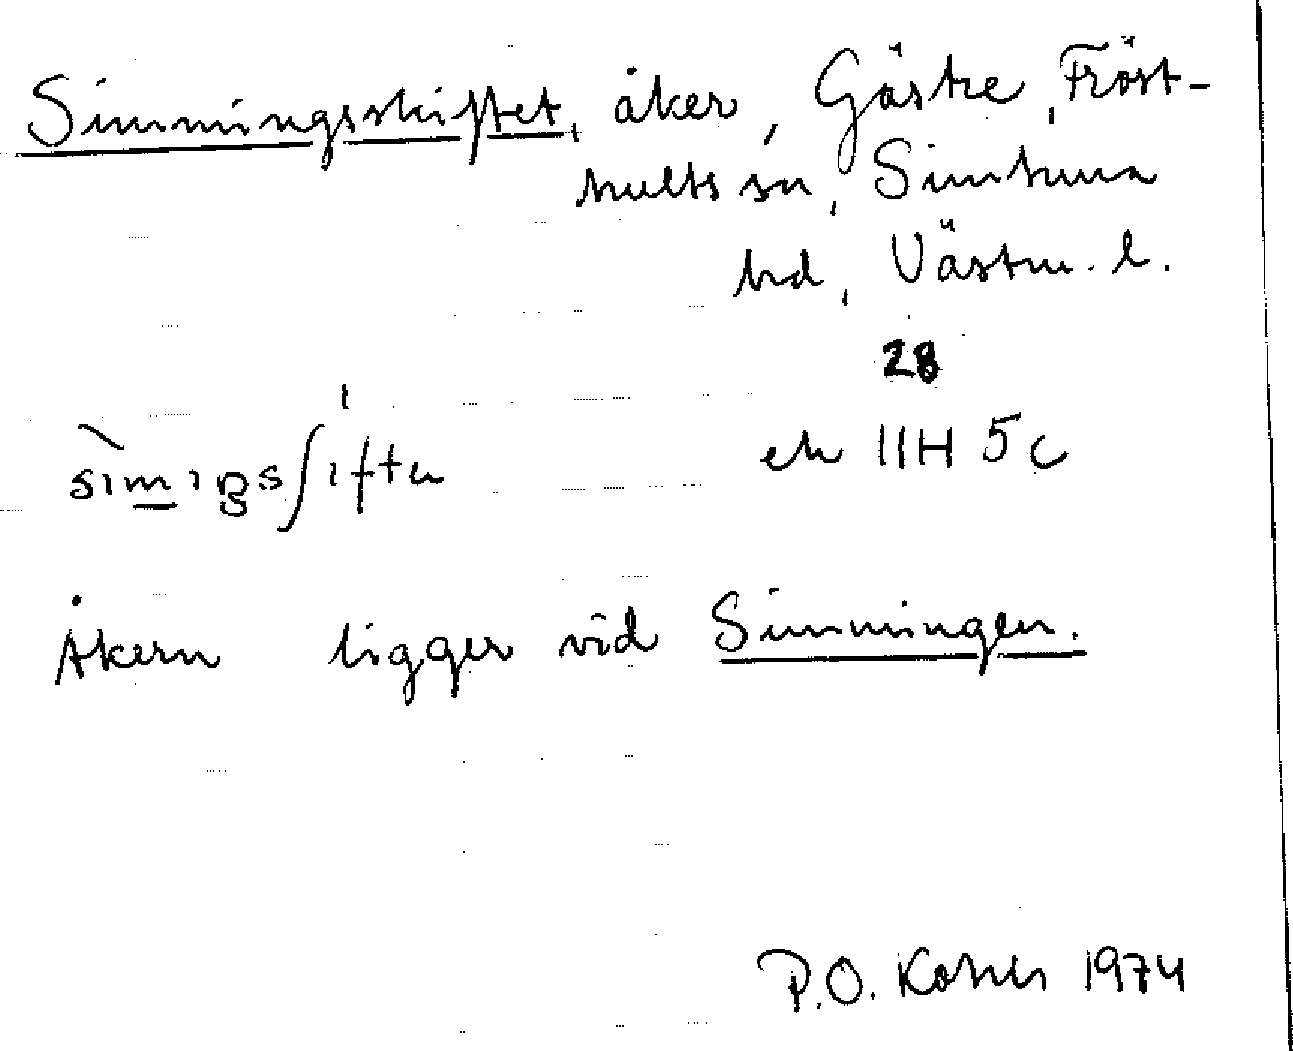 Simmingsskiftet, åker, Gästre, Fröst-
hults sn, Simtuna
hd, Västm. l.
28
ek 11H 5c
Åkern ligger vid Simmingen.
P.O. 1974